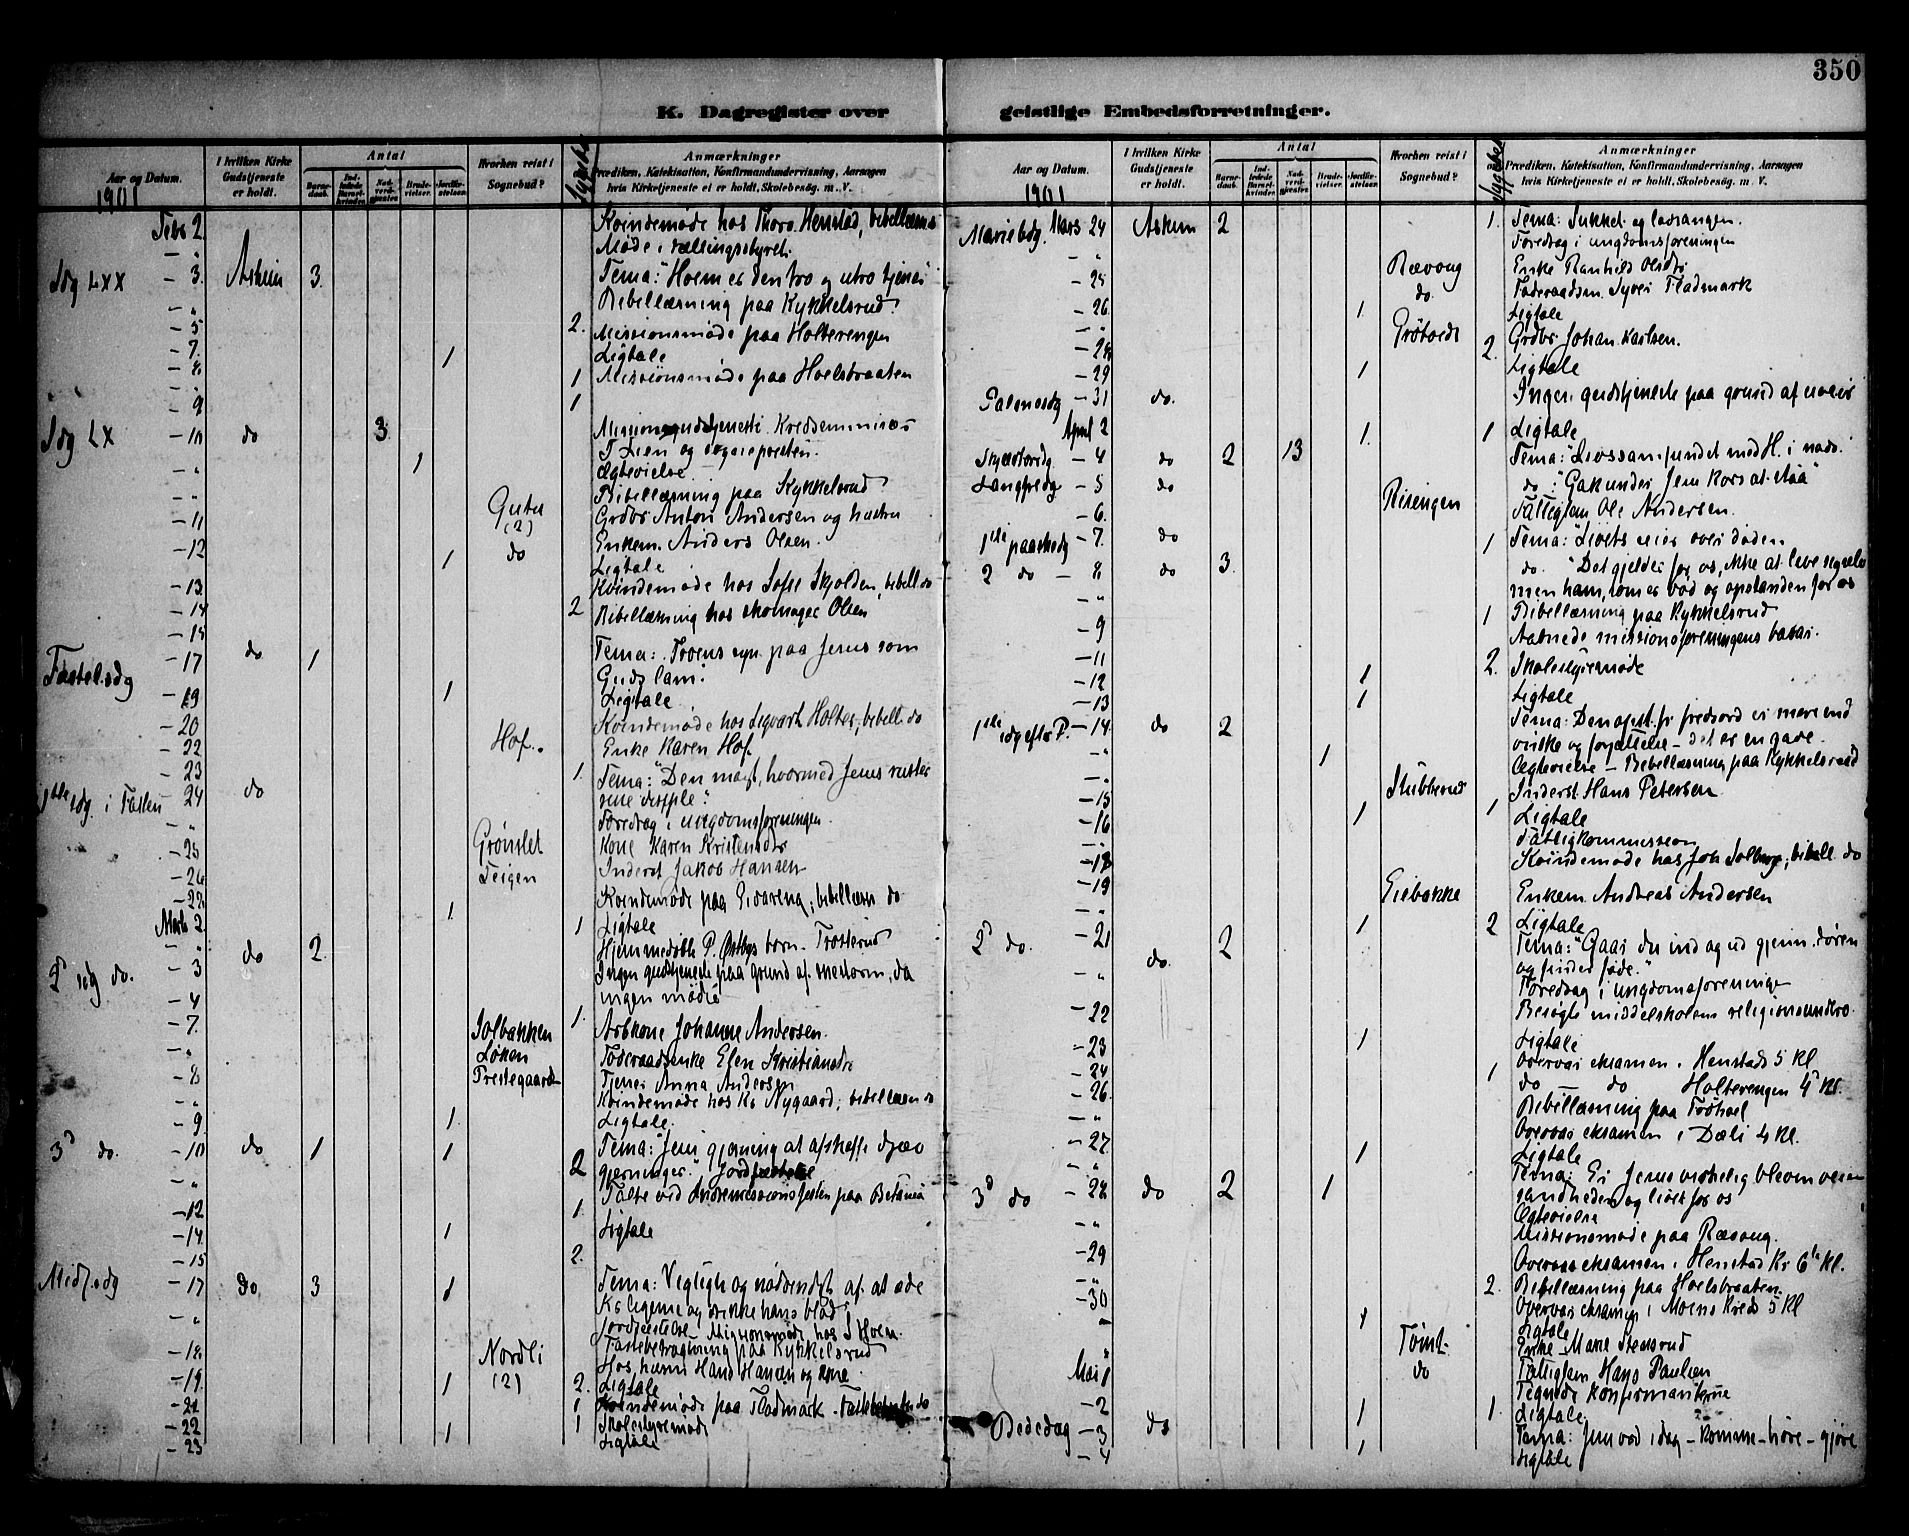 350
K. Dagregister over geistlige Embedsforretninger.
Aar og Datum.
I hvilken Kirke Gudstjeneste er holdt.
Antal
Barnedaab.
Indledede Barselkvinder
Nadverdgjester
Brudevielser.
Jordfæstelser.
Hvorhen reist i Sognebud?
Sygebesøg
Anmærkninger
Prædiken, Katekisation, Konfirmandundervisning, Aarsagen
hvis Kirketjeneste ei er holdt, Skolebesøg. m. V.
1901
Febr 2 Kvindemøde hos Thorv. Henstad, bibellæsn
- " Møde i vælsingsstyret.
Sdg LXX - 3. Askim 3. Tema: "Hvem er den tro og utro tjener
- " Bibellæsning paa Kykkelsrud
- 5 2. Missionsmøde paa Holterengen
- 7. 1 Ligtale
- 8 1 Missionsmøde paa Hoelsbraaten
- "
- 9 1
Sdg LX - 10 do 3 Missionsgudstjeneste. Kredsemissær
T. Lien og sognepresten.
- " 1 Ægtevielse
- " Bibellæsning paa Kykkelsrud
- 11 Guter (2) Grdbr Anton Andersen og hustru
- 12 do Enkem. Anders Olsen.
1 Ligtale
- 13. Kvindemøde hos Sofie Skjolden, bibell. do
- 14 2 Bibellæsning hos skomager Olsen
- 15
Fastel.sdg - 17 do 1 Tema: Troens syn paa Jesus som
Guds lam.
- 19 1 Ligtale
- 20 Kvindemøde hos Sigvart Holter, bibell. do
- 22 Hof. Enke Karen Hof.
- 23 1.
1ste sdg. i Fasten 24 do Tema: "Den magt, hvormed Jesus ruster
sine disiple".
- " Foredrag i ungdomsforeningen.
- 25 Grønslet Kone Karen Kristensdtr
- 26 Teigen Inderst Jakob Hansen
- 28 Kvindemøde paa Eidareng, bibellæsn do
Marts 2 1. 1 Ligtale
- " Hjemmedøbt P. Østbys barn. Trosterud
2d sdg do. - 3 do 2. Ingen gudstjeneste paa grund af snestorm, da
ingen mødte
- 4 1.
- 7. Solbakken Arbkone Johanne Andersen.
- " Løken Føderaadsenke Elen Kristiansdtr
- 8 Prestegaarden Tjener Anna Andersen
- " Kvindemøde hos Kr Nygaard; bibellæsn do
- 9. 1. Ligtale.
3d do. - 10 do 1 1 Tema: "Jesu gjerning at afskaffe djæv.
2 gjerninger." Jordfæstelse
- " Talte ved Indremissionsfesten paa Betania
- 12 1.
- 14. 1 Ligtale
- 15 2.
Midf.sdg - 17 do 3 1 Tema: Vigtigh og nødvendigh af at æde
Kr legeme og drikke hans blod.
- " Jordfæstelse - Missionsmøde hos S Hoen.
Fastebetragtning paa Kykkelsrud
- 18 Nordli (2) Hos husm Hans Hansen og kone
- 19 1 2. Ligtale
- 21 1 Kvindemøde paa Fladmark -
- 22 1 Skolestyremøde
- 23 1 Ligtale
Aar og Datum.
I hvilken Kirke Gudstjeneste er holdt.
Antal
Barnedaab.
Indledede Barselkvinder
Nadverdgjester
Brudevielser.
Jordfæstelser.
Hvorhen reist i Sognebud?
Sygebesøg
Anmærkninger
Prædiken, Katekisation, Konfirmandundervisning, Aarsagen
hvis Kirketjeneste ei er holdt, Skolebesøg. m. V.
1901
Mariebdg. Mars 24 Askim 2 1. Tema: Sukket og lovsangen.
- " Foredrag i ungdomsforeningen
- 25 Rævoug Enke Ranhild Olsdtr
do. Føderaadsm. Syver Fladmark
- 26. 1 Ligtale
- " Grøtvedt Grdbr. Johan Karlsen.
- 28 2.
- 29 1 Ligtale
Palmesdg - 31 do. Ingen gudstjeneste paa grund af uveir
April 2 1. 1 Ligtale
Skjærtorsdg - 4 do 2 13 Tema: "Livssamfundet med H. i nadv.
Langfredg - 5 do do "Gak under Jesu kors at staa"
- 6. Risengen Fattiglem Ole Andersen.
1ste paaskedg - 7. do 1 Tema: "Livets seier over døden
2 do - 8 do 3. do. "Det gjelder for os, ikke at leve sig selv
men ham, som er død og opstanden for os
- " 1 Bibellæsning paa Kykkelsrud
- 9 Aabnede missionsforeningens basar.
- 11 2. Skolestyremøde
- 12 1 Ligtale
- 13 1
1ste sdg efter P. - 14. do 2 Tema: Den opst. fr. fredsord er mere end
ønske og forjættelse - det er en gave.
- " 1 Ægtevielse - Bibellæsning paa Kykkelsrud
- " Stubberud Inderst Hans Petersen
- 15 1
- 16 1 Ligtale
- " Fattigkommission
- 18 Kvindemøde hos Joh Solberg; bibell. do
- 19 Eiebakke Enkem Andreas Andersen
- " 1 2 Ligtale
2d do. - 21 do. 2 Tema: "Gaar du ind og ud gjenn. døren
og finder føde."
- " Foredrag i ungdomsforeninge
- 22 Besøgte middelskolens religionsundvs.
- 23 1 Ligtale
- 24 1 Overvar eksamen i Henstads 5 Kl
- 26 do - do Holterengen 4d Kl.
- " Bibellæsning paa Trøhael
- 27. Overvar eksamen i Dæli 4 Kl.
- " 1 Ligtale
3d do - 28 do 2 1 2 Tema: Er Jesus virkelig bleven veien
sandheden og livet for os
Ægtevielse
- " Missionsmøde paa Ræsoug.
- 29 Overvar eksamen i Henstad Kr 6te Kl.
- " 2. Bibellæsning paa Hoelsbraaten
- 30 Overvar eksamen i Moens Kreds 5 Kl
- " 1 Ligtale
Tomt. Enke Marie Stensrud
Mai 1 do Fattiglem Hans Paulsen
Tegnede konfirmanterne
- 2 1 1. Ligtale
Bededag - 3 do Tema: Jesu ord idag - komme - høre - gjøre
- 4 1 Ligtale